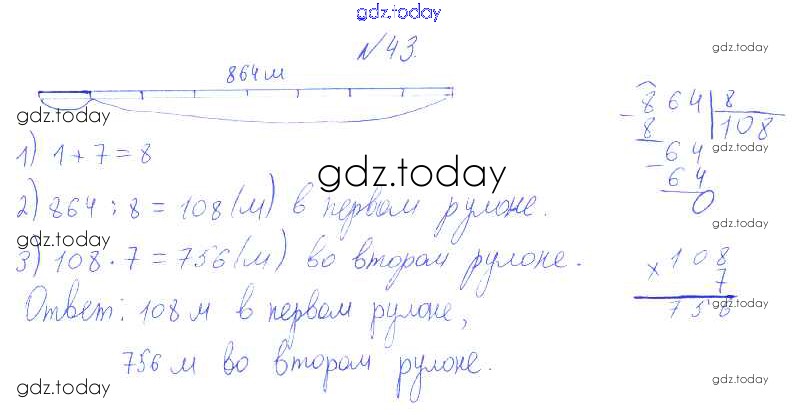 gdz.today
N43.
gdz.today
864м
gdz.today
1) 1 + 7 = 8
gdz.today
2) 864 : 8 = 108 (м) в первом рулоне.
gdz.today
3) 108 · 7 = 756 (м) во втором рулоне.
Ответ: 108 м в первом рулоне,
756 м во втором рулоне.
gdz.today
gdz.today
- 864 | 8
8 | 108
gdz.today
gdz.today
- 64
64
0
gdz.today
× 108
7
756
gdz.today
gdz.today